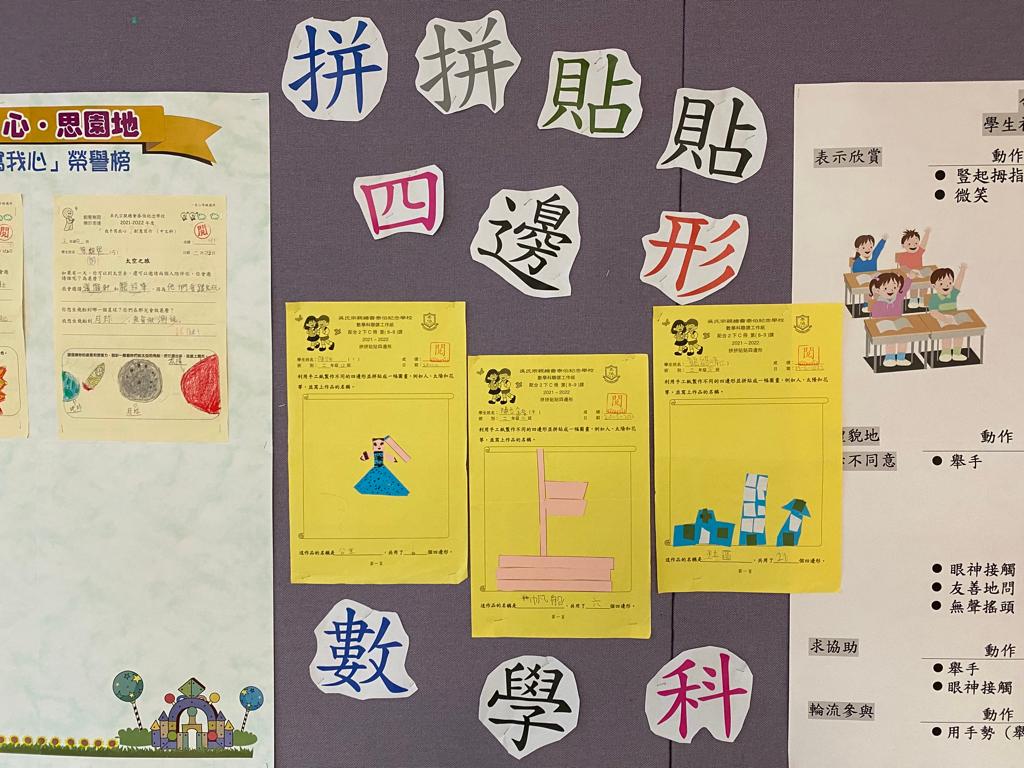 拼拼貼貼
四邊形
數學科
心・思園地
我心」榮譽榜
2021-2022 年度
學生姓名
太空之旅
吳氏宗親總會泰伯紀念學校
數學科聯課工作紙
配合2下C冊 第(8-9)課
2021-2022
拼拼貼貼四邊形
利用手工紙製作不同的四邊形並拼貼成一幅圖畫,例如人、太陽和花
等,並寫上作品的名稱。
這作品的名稱是 公主 ,共用了 個四邊形。
第一頁
吳氏宗親總會泰伯紀念學校
數學科聯課工作紙
配合2下C冊 第(8-9)課
2021-2022
拼拼貼貼四邊形
利用手工紙製作不同的四邊形並拼貼成一幅圖畫,例如人、太陽和花
等,並寫上作品的名稱。
這作品的名稱是 帆船 ,共用了 六 個四邊形。
第一頁
吳氏宗親總會泰伯紀念學校
數學科聯課工作紙
配合2下C冊 第(8-9)課
2021-2022
拼拼貼貼四邊形
利用手工紙製作不同的四邊形並拼貼成一幅圖畫,例如人、太陽和花
等,並寫上作品的名稱。
這作品的名稱是 社區 ,共用了 21 個四邊形。
第一頁
學生
動作
表示欣賞
● 豎起拇指
● 微笑
貌地
動作
不同意
● 舉手
● 眼神接觸
● 友善地問
● 無聲搖頭
求協助
動作
● 舉手
● 眼神接觸
輪流參與
動作
● 用手勢(舉